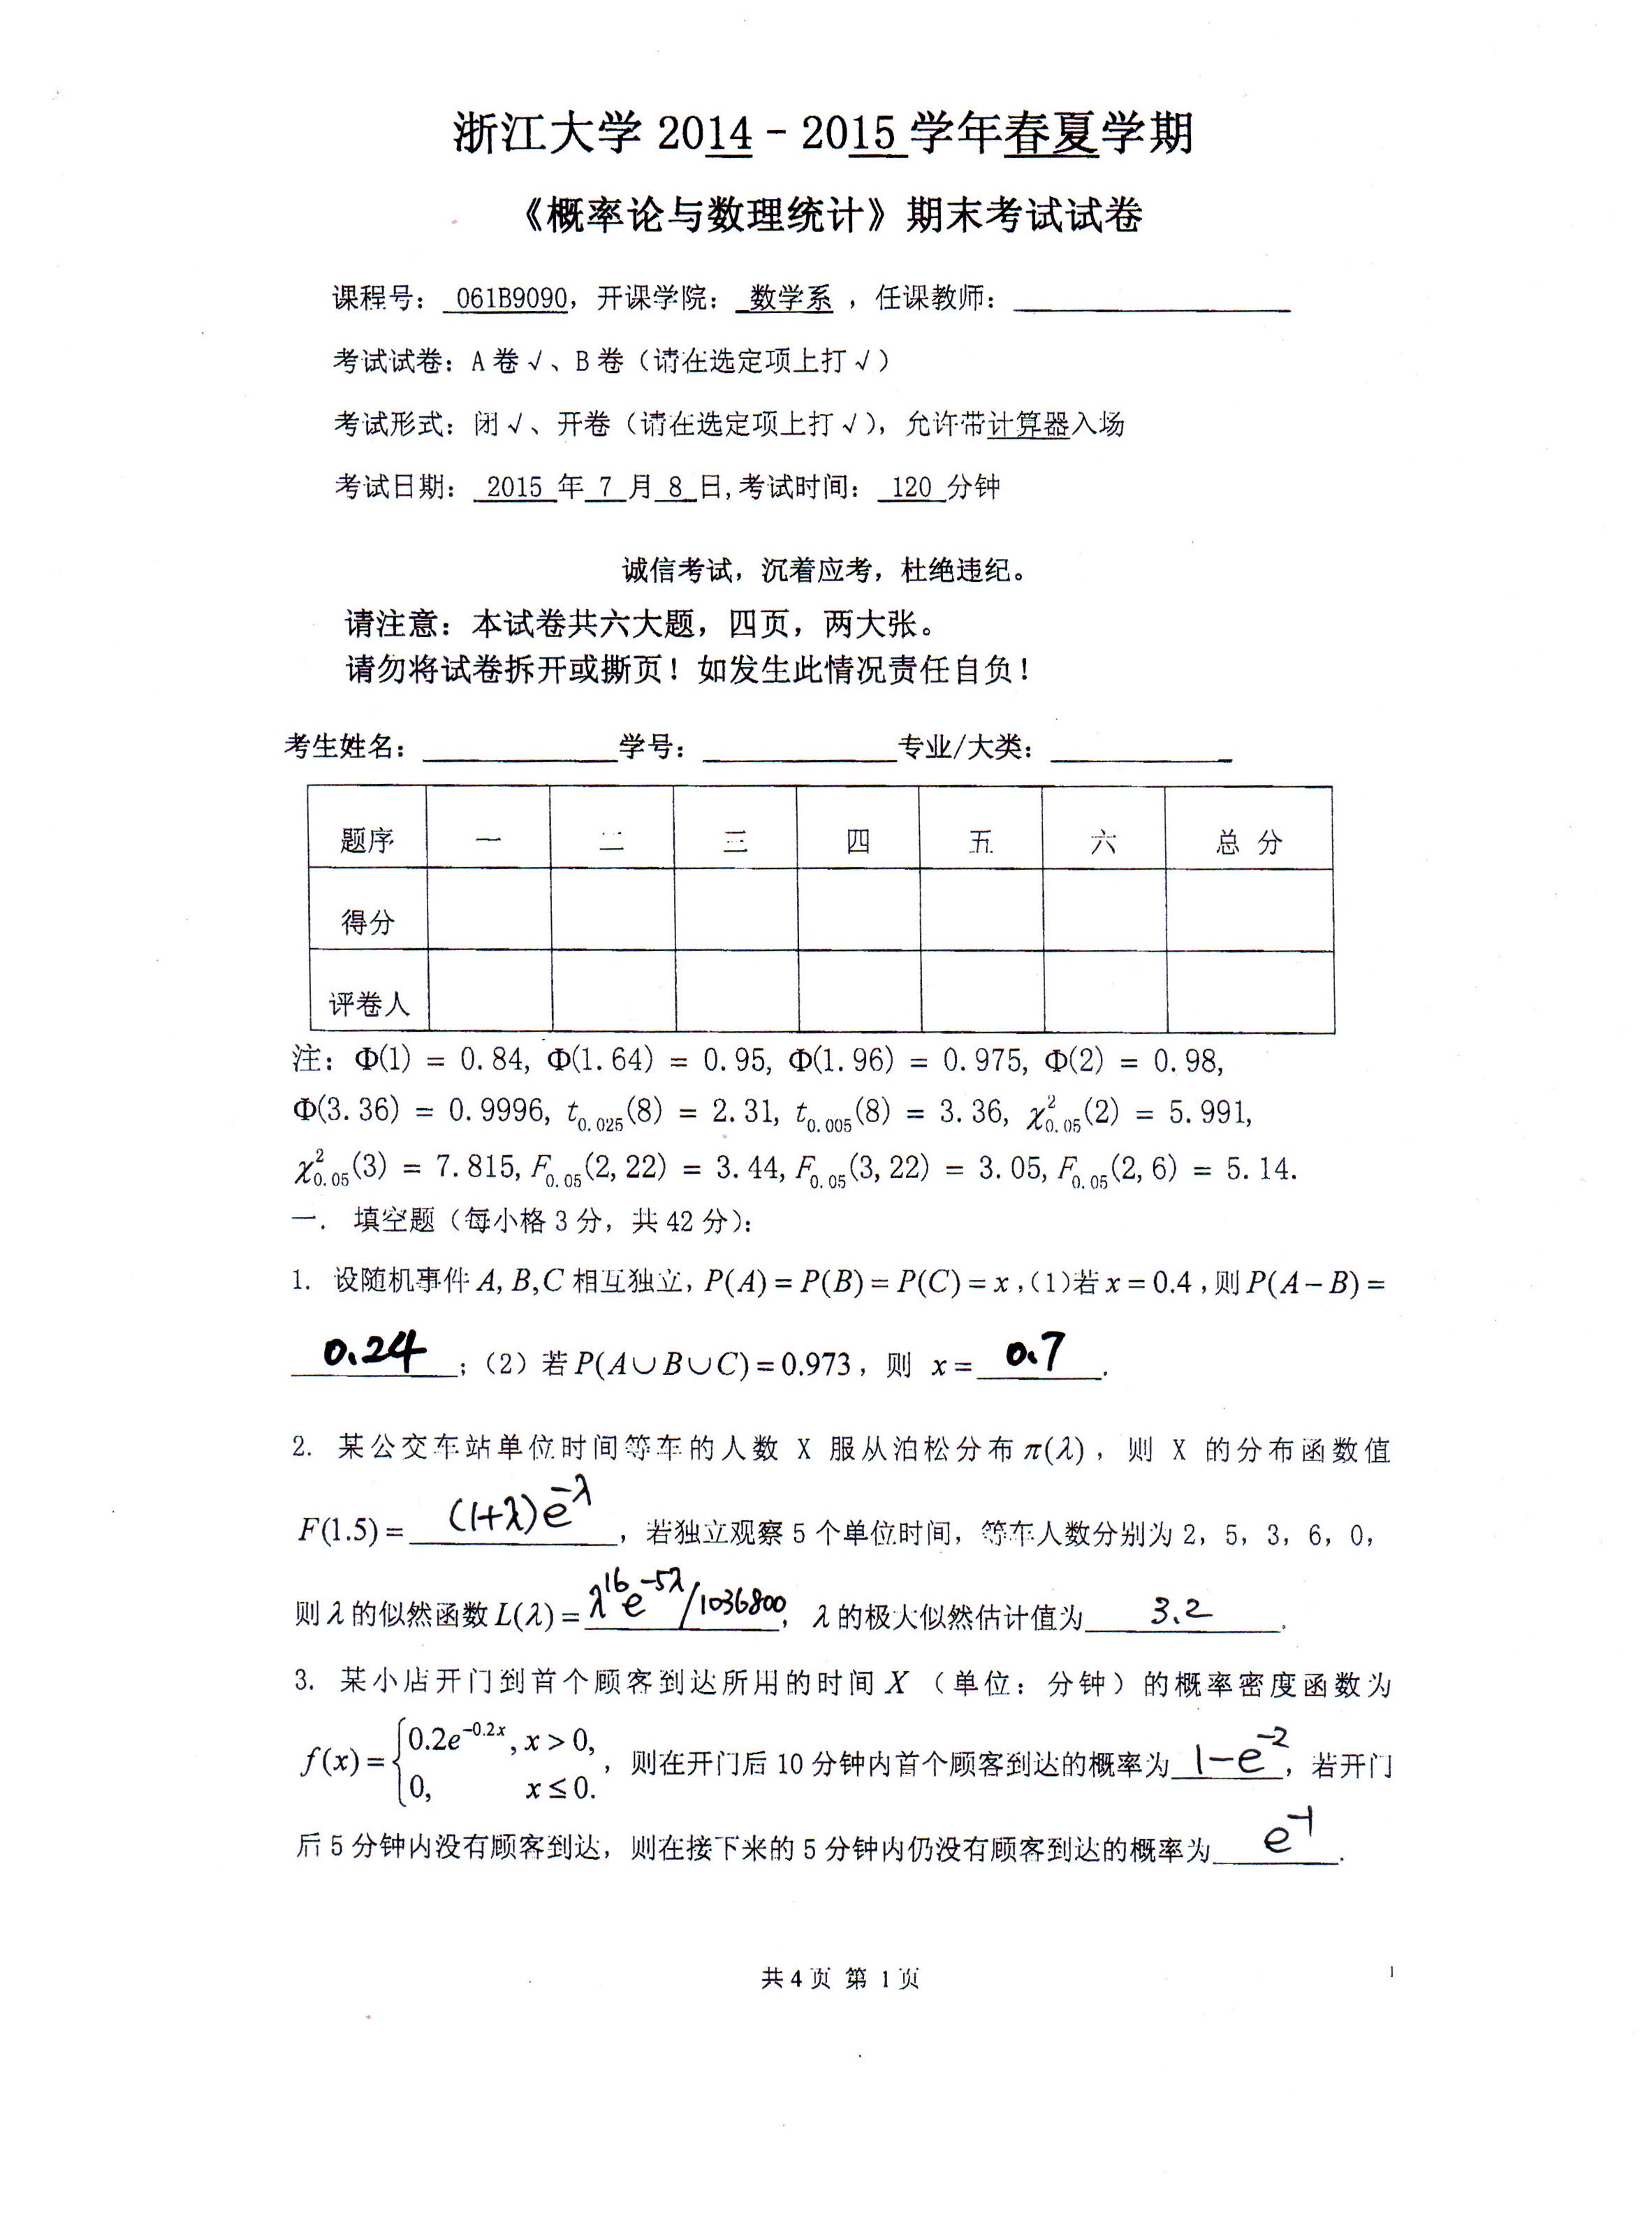 浙江大学 2014 - 2015 学年春夏学期
《概率论与数理统计》期末考试试卷
课程号: 061B9090, 开课学院: 数学系 , 任课教师:
考试试卷: A 卷 √、B 卷 (请在选定项上打 √)
考试形式: 闭 √、开卷 (请在选定项上打 √), 允许带计算器入场
考试日期: 2015 年 7 月 8 日, 考试时间: 120 分钟
诚信考试, 沉着应考, 杜绝违纪。
请注意: 本试卷共六大题, 四页, 两大张。
请勿将试卷拆开或撕页! 如发生此情况责任自负!
考生姓名: 学号: 专业/大类:
题序 一 二 三 四 五 六 总 分
得分
评卷人
注: Φ(1) = 0.84, Φ(1.64) = 0.95, Φ(1.96) = 0.975, Φ(2) = 0.98,
Φ(3.36) = 0.9996, t_{0.025}(8) = 2.31, t_{0.005}(8) = 3.36, χ²_{0.05}(2) = 5.991,
χ²_{0.05}(3) = 7.815, F_{0.05}(2, 22) = 3.44, F_{0.05}(3, 22) = 3.05, F_{0.05}(2, 6) = 5.14.
一. 填空题 (每小格 3 分, 共 42 分):
1. 设随机事件 A, B, C 相互独立, P(A) = P(B) = P(C) = x , (1)若 x = 0.4 , 则 P(A − B) =
0.24 ; (2) 若 P(A∪B∪C) = 0.973 , 则 x = 0.7 .
2. 某公交车站单位时间等车的人数 X 服从泊松分布 π(λ) , 则 X 的分布函数值
F(1.5) = (1+λ)e^{-λ} , 若独立观察 5 个单位时间, 等车人数分别为 2, 5, 3, 6, 0,
则 λ 的似然函数 L(λ) = λ^{16}e^{-5λ}/1036800, λ 的极大似然估计值为 3.2 .
3. 某小店开门到首个顾客到达所用的时间 X (单位: 分钟) 的概率密度函数为
f(x) = { 0.2e^{-0.2x}, x > 0,
0, x ≤ 0. , 则在开门后 10 分钟内首个顾客到达的概率为 1-e^{-2} , 若开门
后 5 分钟内没有顾客到达, 则在接下来的 5 分钟内仍没有顾客到达的概率为 e^{-1} .
共 4 页 第 1 页
1